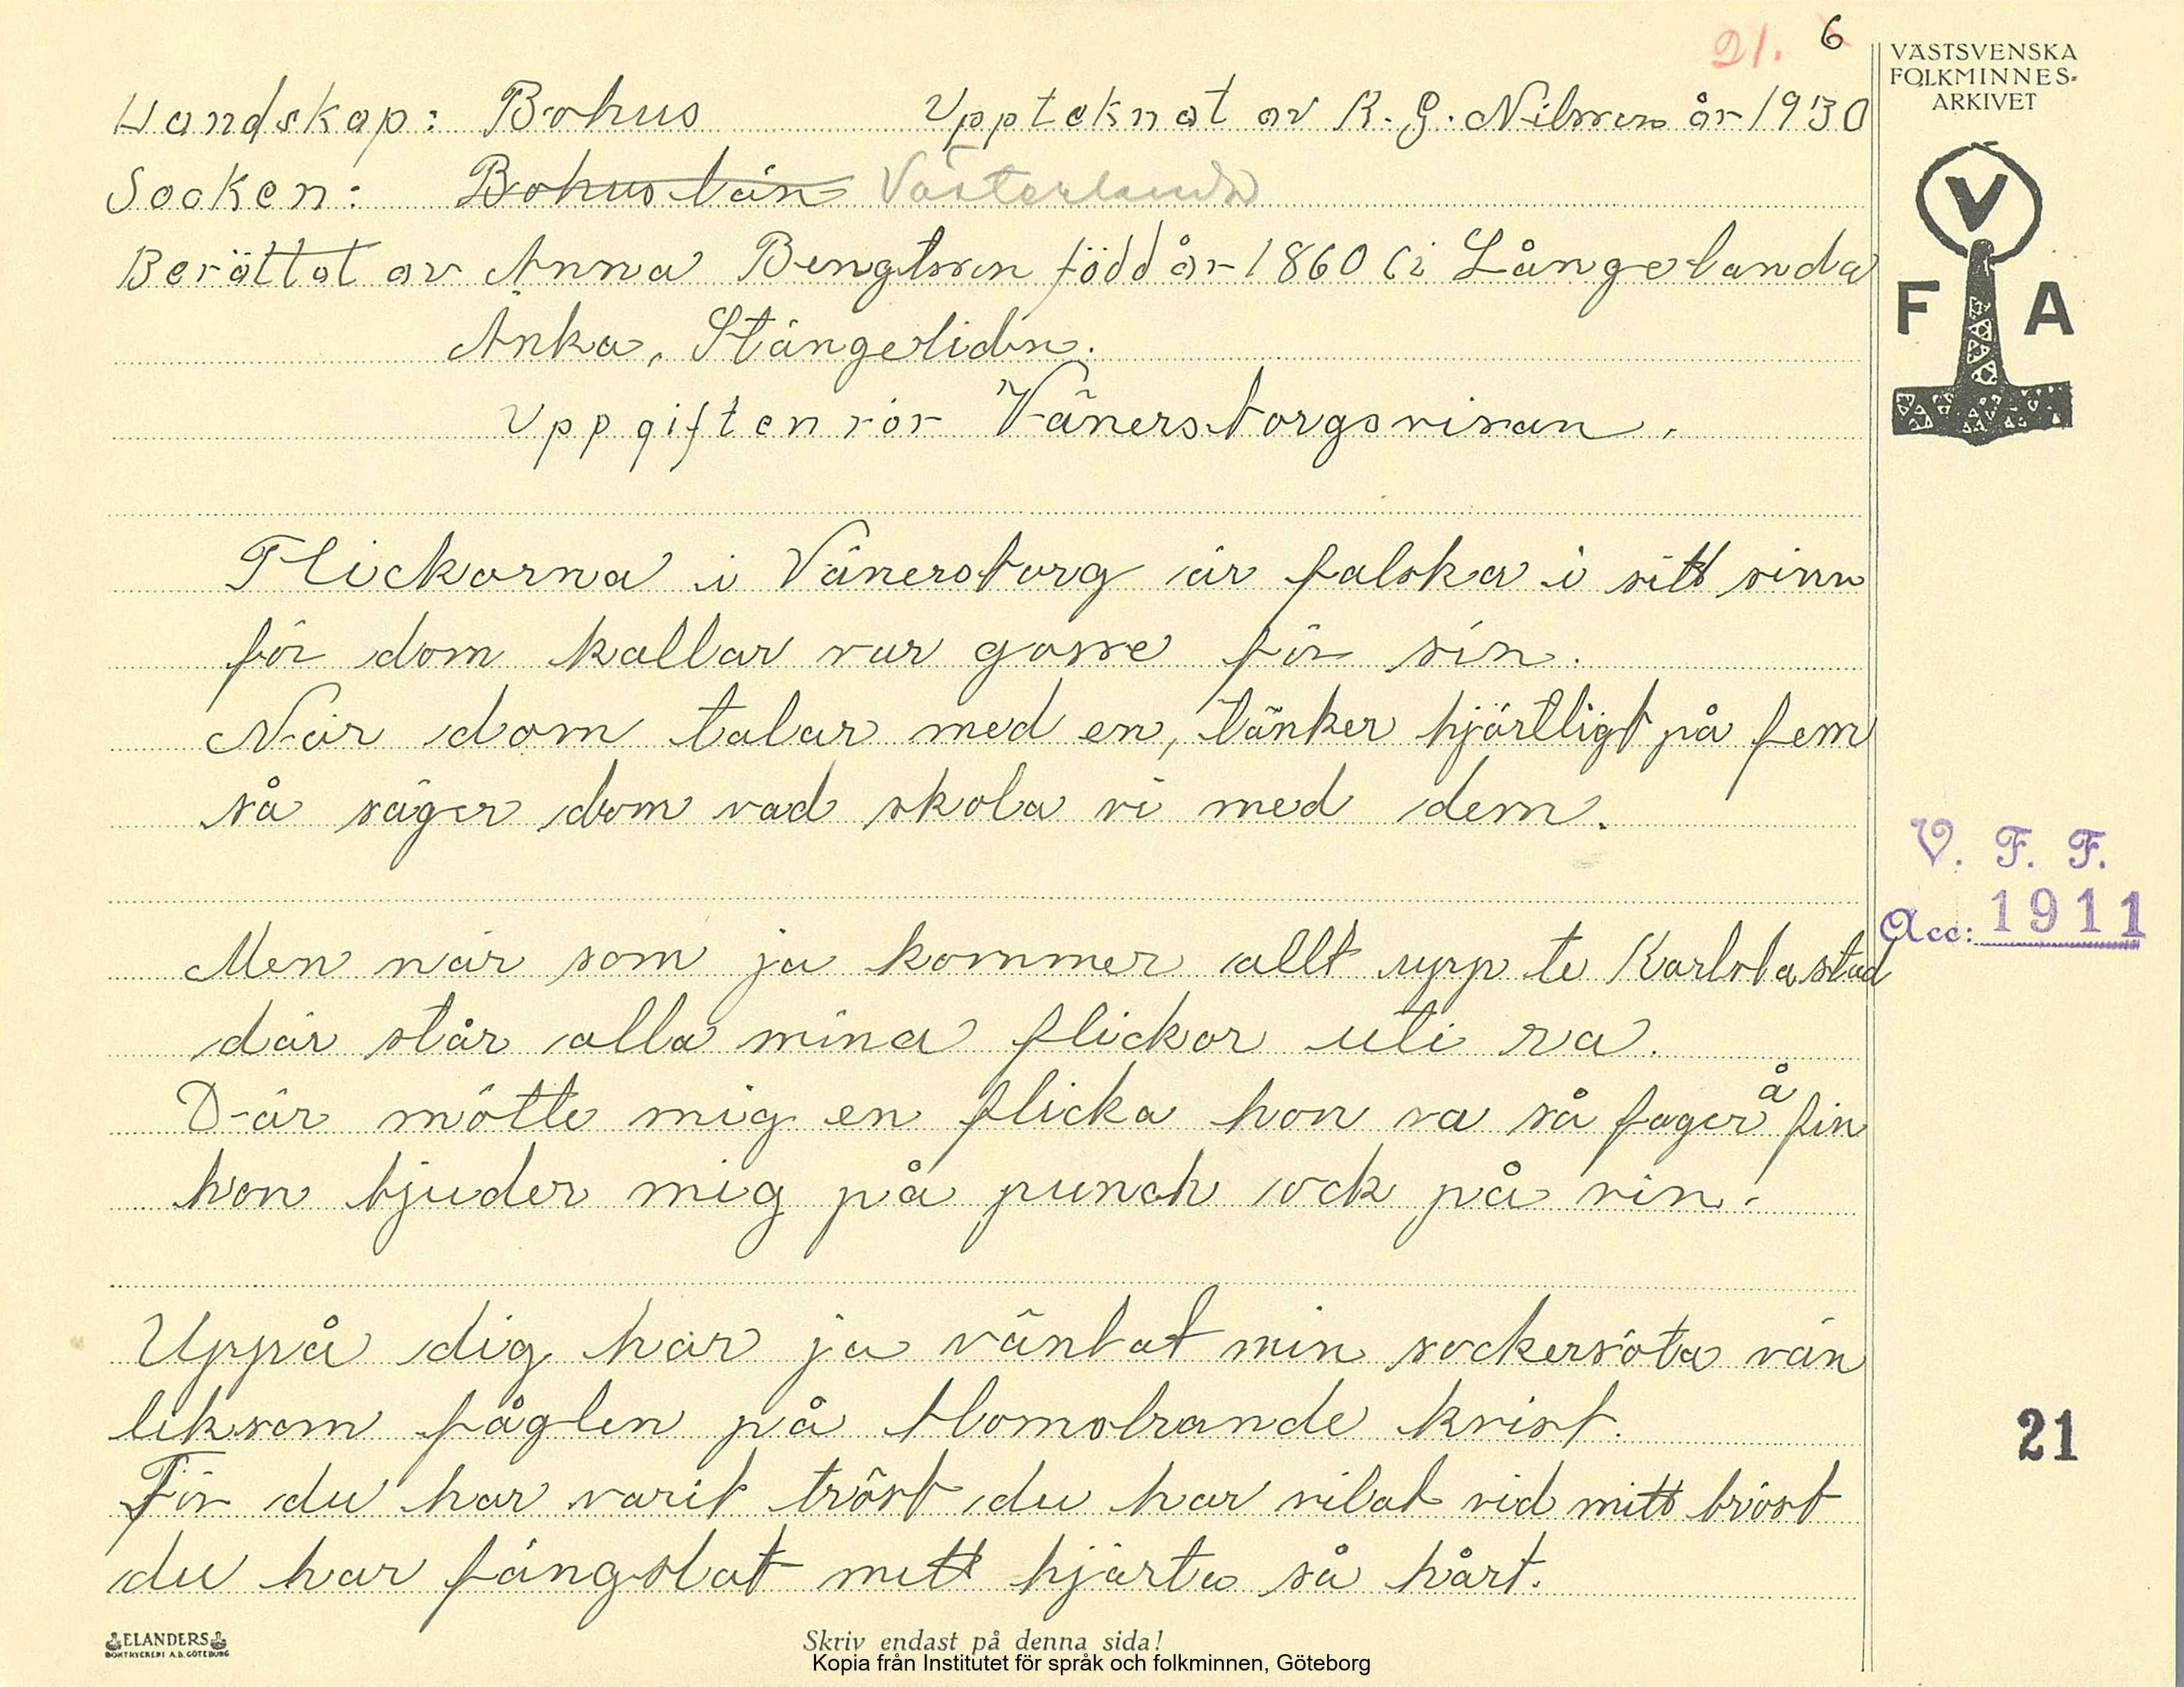 21. 6
VÄSTSVENSKA
FOLKMINNES-
ARKIVET
Landskap: Bohus Uppteknat av K. G. Nilsson år 1930
Socken: Bohuslän Västerlanda
Berättat av Anna Bengtson född år 1860 i Långelanda
Änka, Stängeliden.
Uppgiften rör Vänersborgsvisan.
V
F A
Flickorna i Vänersborg är falska i sitt sinn
för dom kallar var gosse för sin.
När dom talar med en, tänker hjärtligt på fem
så säger dom vad skola vi med dem.
V. F. F.
Acc: 1911
Men när som ja kommer allt upp te Karlsta stad
där står alla mina flickor uti ra.
Där mötte mig en flicka hon va så fager å fin
hon bjuder mig på punch ock på vin.
Uppå dig har ja väntat min sockersöta vän
liksom fåglen på blomstrande kvist.
För du har varit tröst du har vilat vid mitt bröst
du har fängslat mitt hjärta så hårt.
21
ELANDERS
BOKTRYCKERI A.B. GÖTEBORG
Skriv endast på denna sida!
Kopia från Institutet för språk och folkminnen, Göteborg